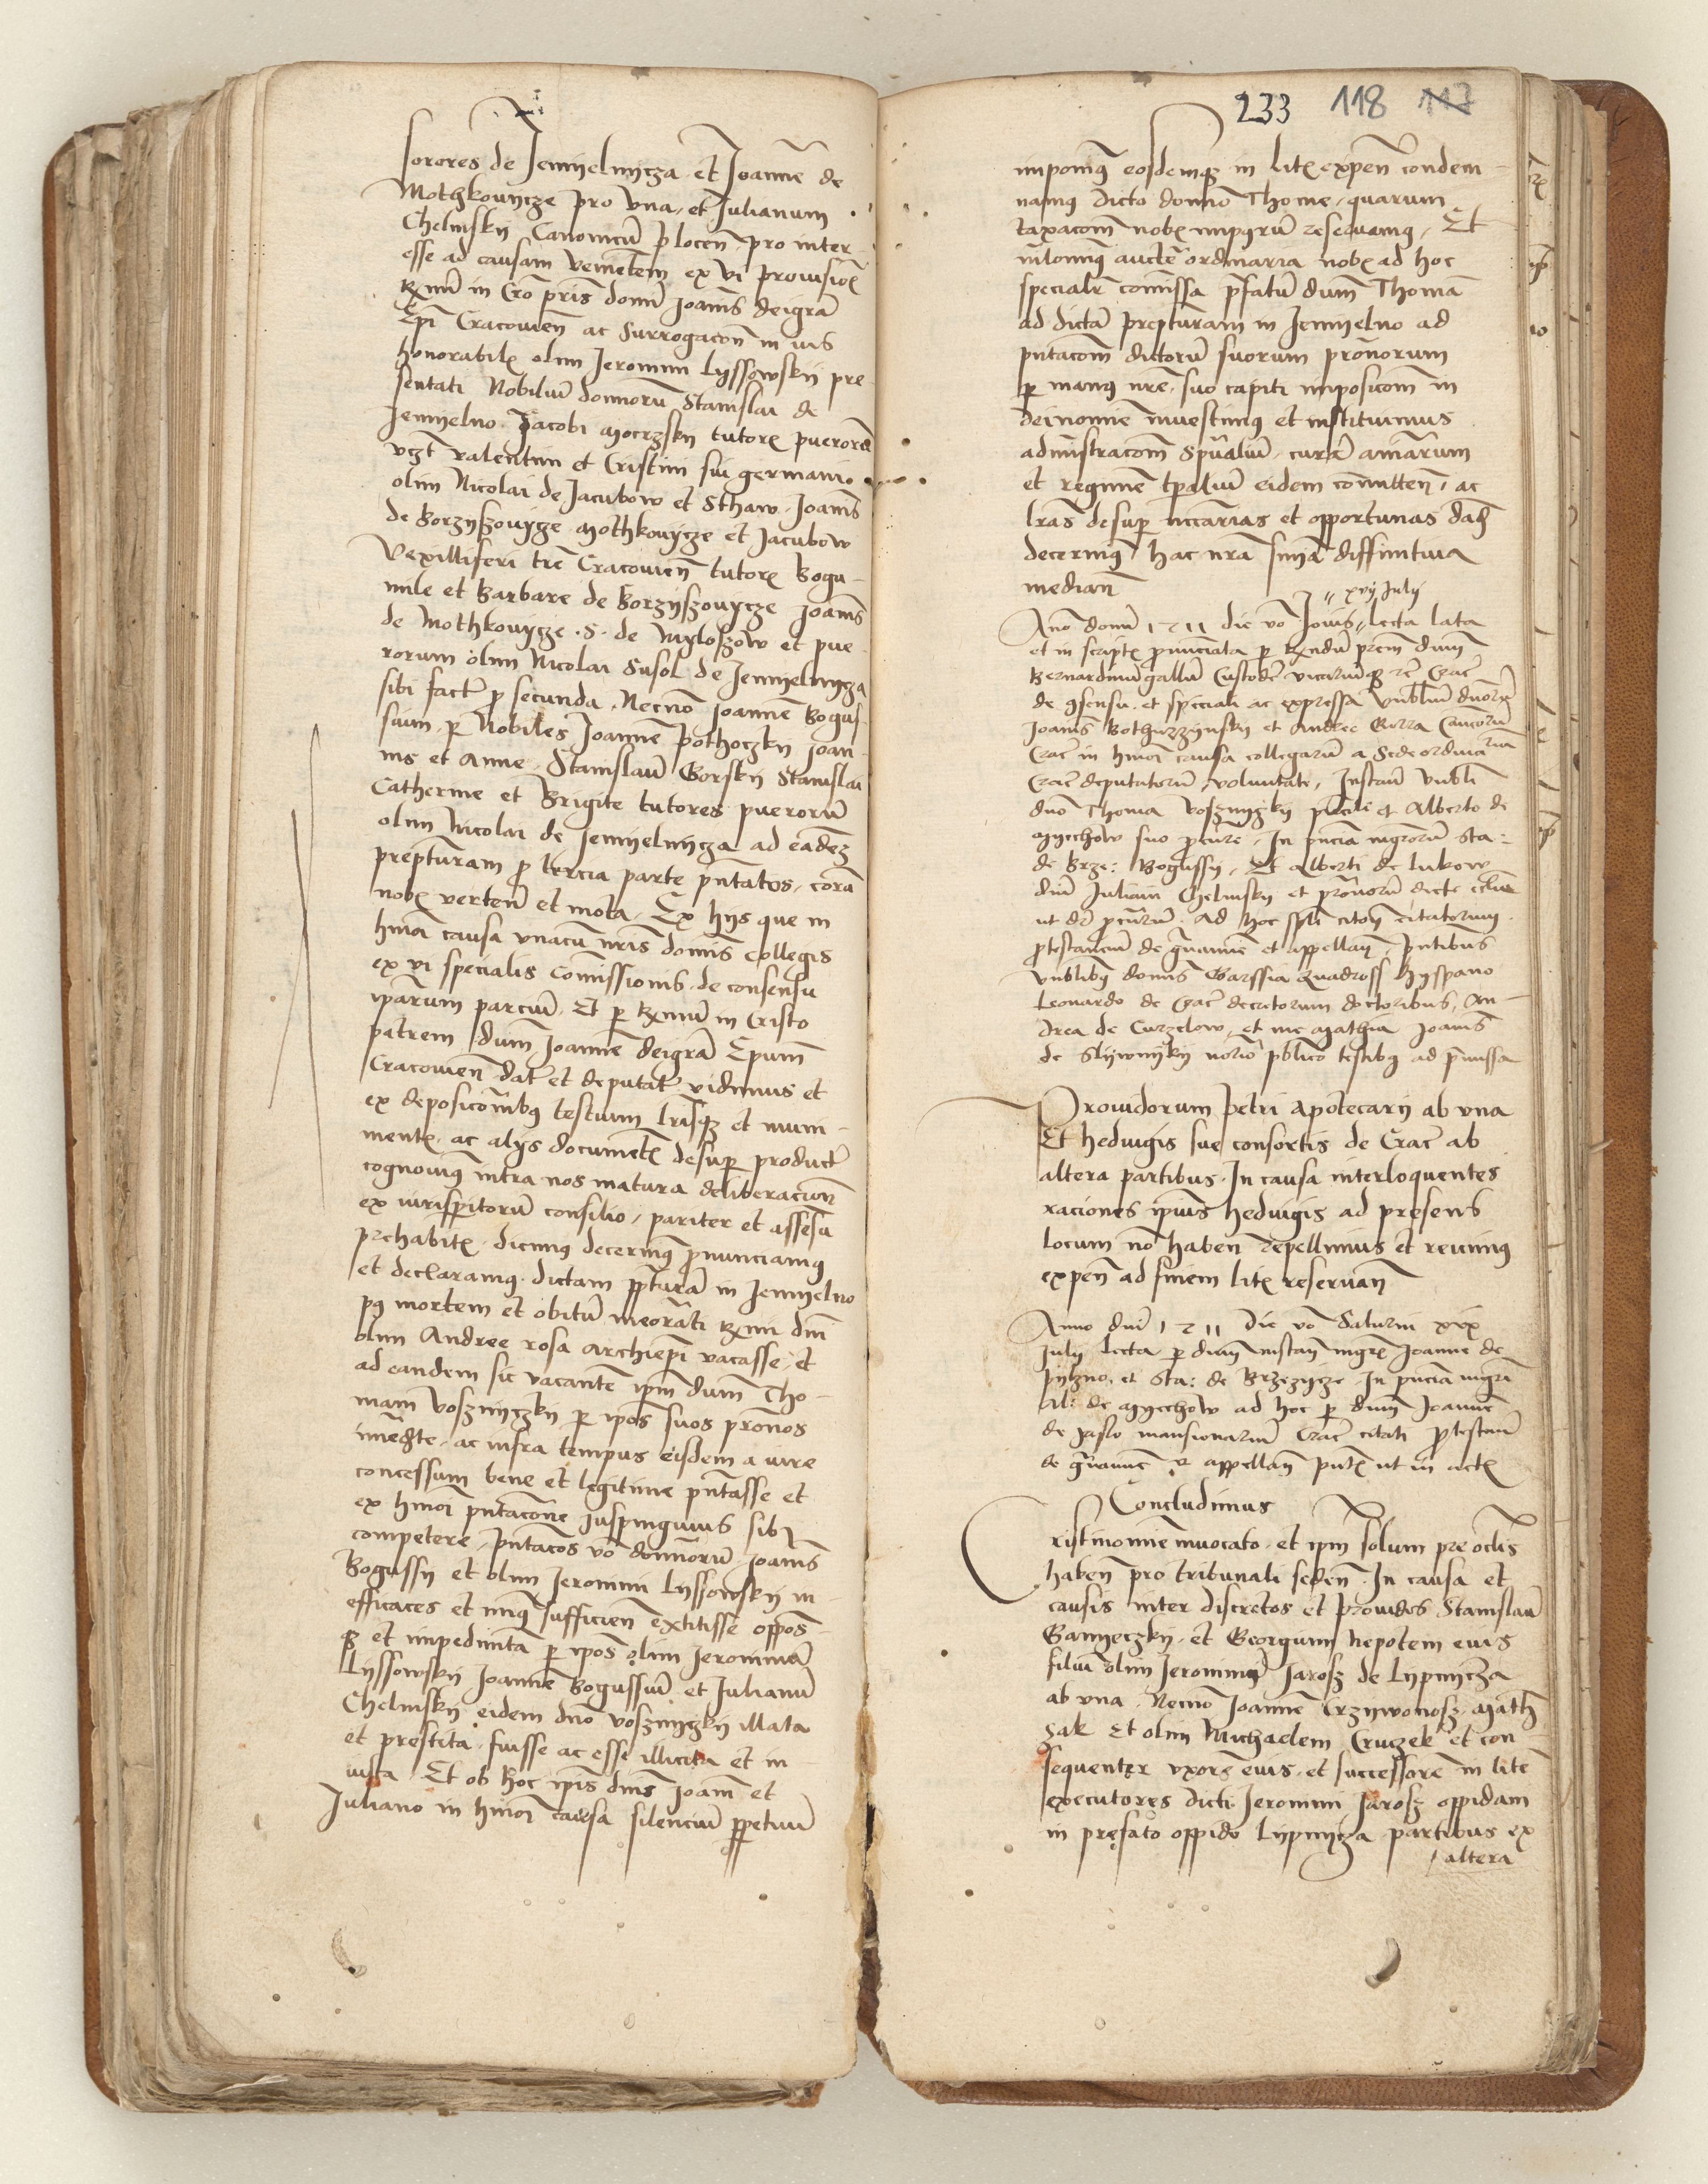 sorores de Jemyelnycza et Joannē de
Mothkouycze pro vna, et Julianum
Chelmskÿ Canonicū plocen̄ pro inter-
esse ad causam venientem ex vi prouisio͠
Rx̄mi in Cro pris̄ domī Joanīs deigrā
Epī Cracouien̄ ac Surrogacon̄ in ius
honorabil͠ olim Jeronimi Lyssowskÿ pre-
sentati Nobiliū donnorū Stanislai de
Jemyelno Jacobi Moczskÿ tutor͠ puerorū
vcz̄t valentini et Cristini sui germani
olim Nicolai de Jacubow et Sthaw. Joanīs
de Borzyszouycze Mothkouycze et Jacubow
Vexilliferi tr̄e Cracouien̄ tutor͠ Bogu-
mile et Barbare de Borzyszouycze Joanīs
de Mothkouycze .S. de Myloszow et pue-
rorum olim Nicolai Susol de Jemyelnycza
sibi fact̄ ꝓ secunda. Necnō Joannē Bogus-
sium ꝑ Nobiles Joannē Pothoczkÿ Joan-
nis et Anne. Stanislaū Gorskÿ Stanislai
Catherine et Brigite tutores puerorū
olim Nicolai de Jemyelnycza ad eādez
prepturam ꝓ tercia parte pn̄tatos, corā
nob͠ verten̄ et mota. Ex hÿs que in
hmōi causa vnacū nr̄is domīs collegis
ex vi specialis commissionis de consensu
ipārum parciū. Et ꝑ Rx̄mū in Cristo
patrem dn̄m Joannē deigrā Epum̄
Cracouien̄ dat̄ et deputat̄ vidimus et
ex deposiconībꝫ testium lr̄isqꝫ et muni-
ment͠ ac alÿs document͠ desuꝑ product̄
cognouimꝰ intra nos matura deliberacion̄
ex iurisꝑitorū consilio, pariter et assesu
prehabit͠. dicimꝰ decernimꝰ ꝓnunciamꝰ
et declaramꝰ. dictam pp̄turā in Jemyelno
pꝰ mortem et obitū meorāti Rx̄mi dn̄i
olim Andree rosa archiepī vacasse, et
ad eandem sic vacantē ipm̄ dn̄m Tho-
mam Voszniczkÿ ꝑ ipōs suos pronōs
imēdte, ac infra tempus eisdem a iure
concessum bene et legitime pn̄tasse et
ex hmōi pn̄tacōne Juspinguius sibꝫ
competere, pn̄tacōs vō domnorū Joanīs
Bogussÿ et olim Jeronimi Lyssowskÿ in-
efficaces et minꝰ sufficien̄ extitisse opposi-
qꝫ et impedimta ꝑ ipōs olim Jeronimū
Lyssowskÿ Joannē Bogussiū et Julianū
Chelmskÿ eidem dn̄o voszniczkÿ illata
et prestita. fuisse ac esse illicita et in
iusta. Et ob hoc ipīs dn̄is Joann̄ et
Juliano in hmōi causa silenciū ꝑpetuū
233 118 117
imponimꝰ eosdemqꝫ in lit͠ expen̄ condem-
namꝰ dicto domō Thome, quarum
taxacōm nob͠ impꝰrū reseruamꝰ, Et
nilominꝰ auctē ordinaria nob͠ ad hoc
specialr̄ commissa pr̄fatū dn̄m Thomā
ad dictā prepturam in Jemyelno ad
pn̄tacōm dictorū suorum pronorum
ꝑ manꝰ nr̄e, suo capiti imposicōm in
deinomine inuestimꝰ et instituimus
administracōm Spūaliū, curā aīarum
et regimē tꝑaliū eidem committen̄, ac
lrās desuꝑ nccārias et opportunas dan̄
decernimꝰ hac nr̄a sn̄ia diffinitiua
median̄
xvij Julÿ
Anō domī 1511 die vō Jouis lecta lata
et in script͠ pronūciata ꝑ Rx̄ndū prem̄ dn̄m
Bernardinū gallū Custodē vicariūqꝫ rc̄ Crac̄
de ꝯsensu et speciali ac expressa Vn̄bliū dn̄orū
Joanīs Bothurzynskÿ et Andree Gorra Canīcorū
Crac̄ in hmōi causa collegarū a Sede ordinaria
Crac̄ deputatorū voluntate, Instan̄ Vn̄bli
dn̄o Thoma Voszniczkÿ pn̄cali et Alberto de
Myechow suo ꝓcure. In pn̄cia mgrorū Sta:
de Brze: Bogussÿ, Et Alberti de lukow
dn̄i Juliani Chelmskÿ et pronorū dicte ecl̄ie
ut dr̄ ꝓcūriū. Ad hoc spāli citon̄ citatorum
ꝓtestanciū de gr̄auamīe et appellan̄ pn̄tibus
Vn̄blibꝫ domīs Garssia Quadross hyspano
Leonardo de Crac̄ decretorum doctoribus, An-
drea de Curzelow, et me Mathia Joanīs
de Slywnykÿ notrō pblico testibꝫ ad pr̄missa
Prouidorum Petri Apotecarÿ ab vna
Et heduigis sue consortis de Crac̄ ab
altera partibus. In causa interloquentes
raciones ipīus heduigis ad presens
locum nō haben̄ repellimus et reicimꝰ
expen̄ ad finem lit͠ reseruan̄
Anno dn̄i 1511 die vō Saturni xix
Julÿ lecta ꝑ dn̄m instan̄ mgr͠ Joanne de
Pylzno, et Sta: de Brzezycze. In pn̄cia mgrī
Al: de Myechow ad hoc ꝑ dn̄m Joannē
de Jaslo mansionariū Crac̄ citati ꝓtestan̄
de gr̄auamīe et appellan̄ pn̄t͠ ut in act͠
Concludimus
Cristinomīne inuocato, et ipm̄ solum pre oclīs
haben̄ pro tribunali seden̄. In causa et
causis inter discretos et prouidos Stanislaū
Gamyeczkÿ, et Georgium Nepotem euis
filiū olim Jeronimi Jarosz de Lypnycza
ab vna. Necnō Joannē Crzywonosz, Math̄
zak Et olim Michaelem Cruczek et con-
sequenter vxorē euis et successorē in litē
executores dicti Jeronimi Jarosz oppidani
in prefato oppido Lypnycza partibus ex
altera